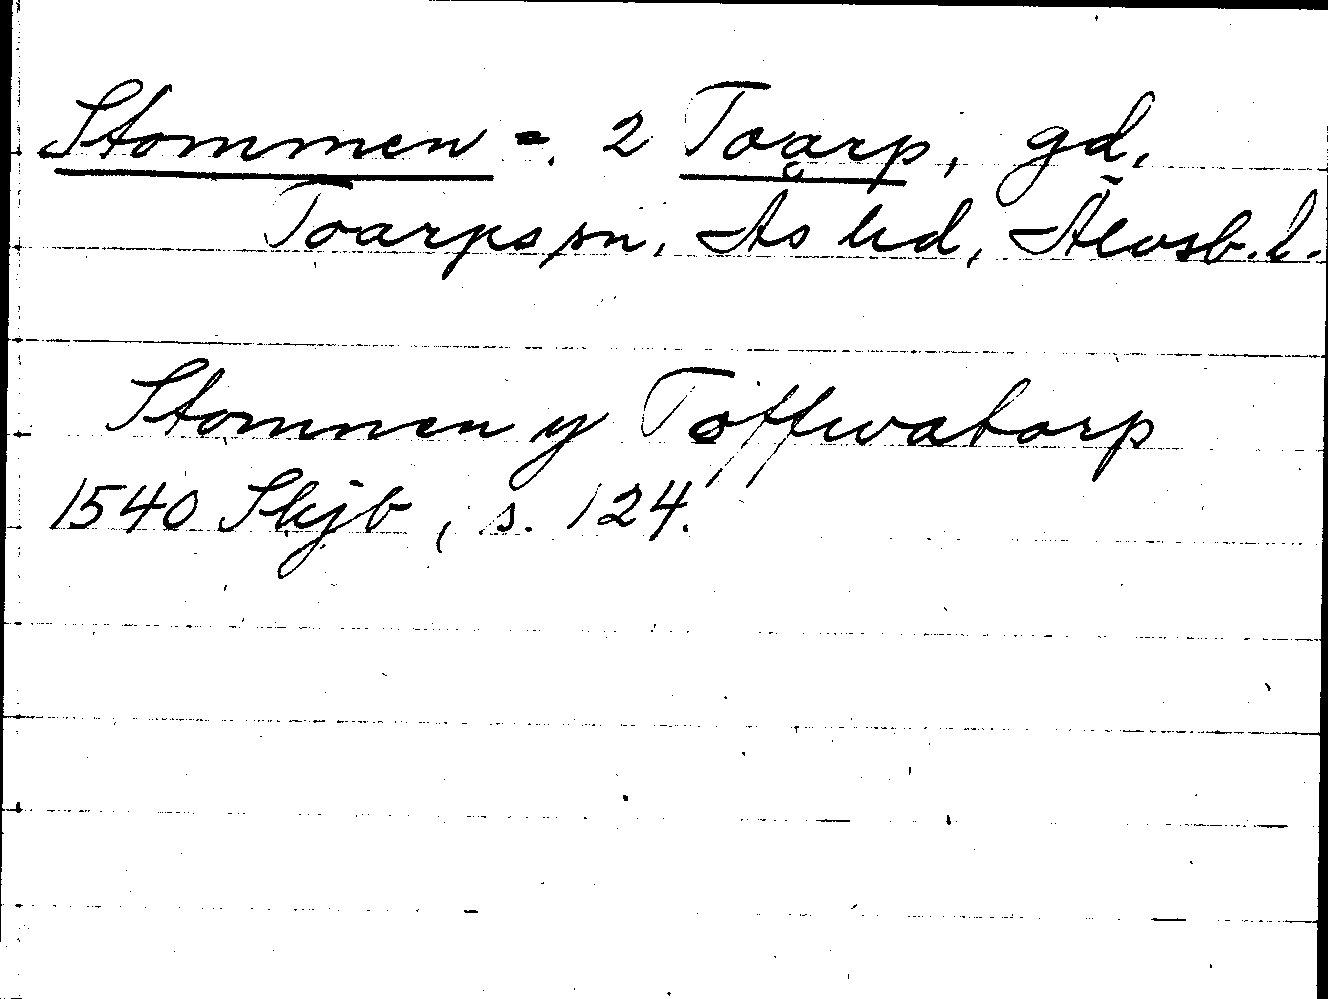 Stommen = 2 Toarp, gd,
Toarps sn, Ås hd, Älvsb. l.
Stommen y Toffwatorp
1540 Skjb, s. 124.